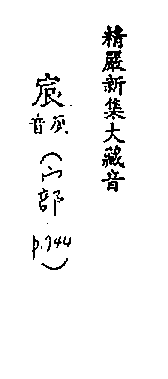 精嚴新集大藏音
宸
音辰
(宀部
p.744)